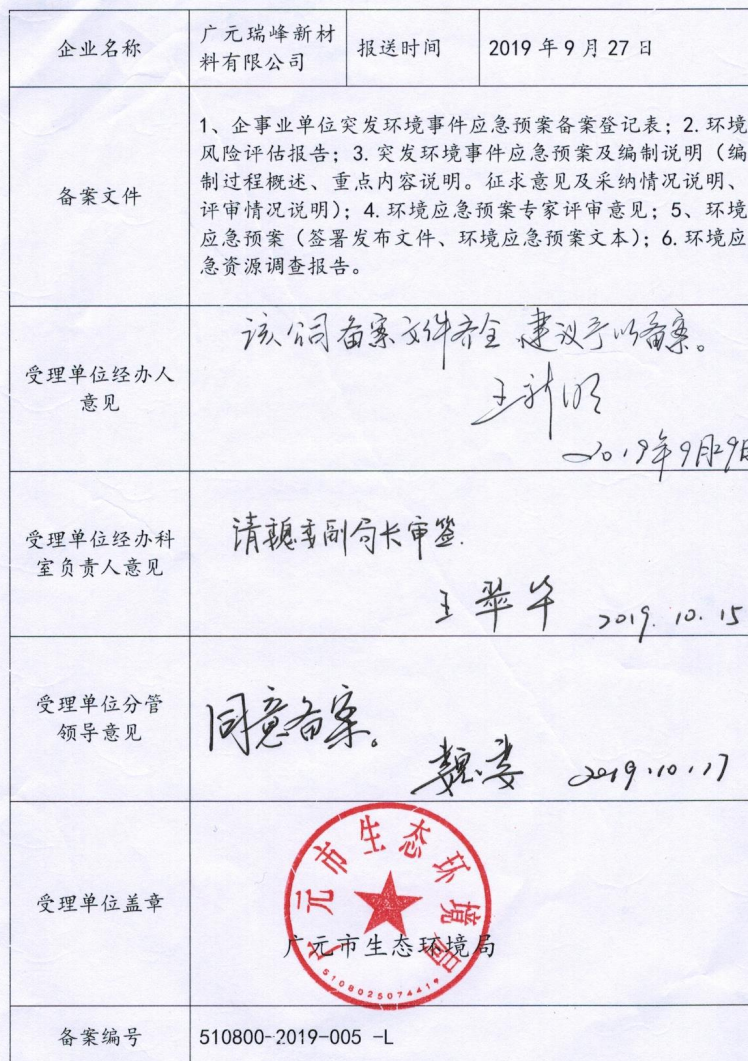 企业名称
广元瑞峰新材
料有限公司
报送时间
2019 年 9 月 27 日
备案文件
1、企事业单位突发环境事件应急预案备案登记表；2.环境
风险评估报告；3.突发环境事件应急预案及编制说明（编
制过程概述、重点内容说明。征求意见及采纳情况说明、
评审情况说明）；4.环境应急预案专家评审意见；5、环境
应急预案（签署发布文件、环境应急预案文本）；6.环境应
急资源调查报告。
受理单位经办人
意见
该公司备案文件齐全 建议予以备案。
王新明
2019年9月29日
受理单位经办科
室负责人意见
请魏副局长审签.
王翠华 2019.10.15
受理单位分管
领导意见
同意备案。
魏 2019.10.17
受理单位盖章
广元市生态环境局
广元市生态环境局
5108025074419
备案编号
510800-2019-005 -L